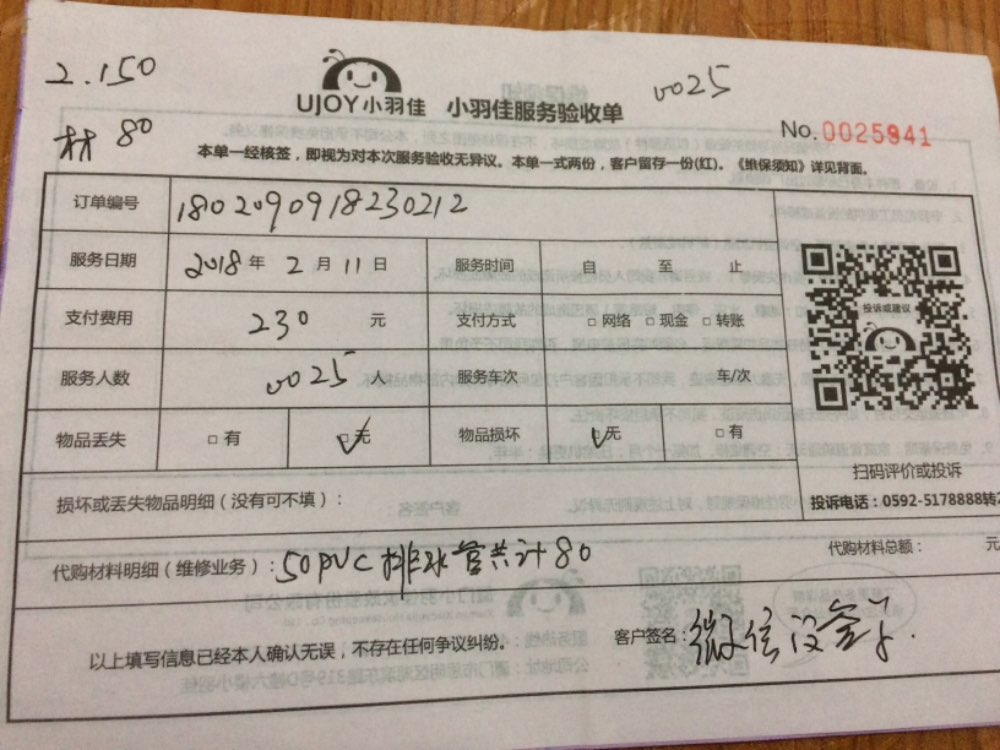 2.150
0025
UJOY小羽佳 小羽佳服务验收单
No.0025941
材 80
本单一经核签，即视为对本次服务验收无异议。本单一式两份，客户留存一份(红)。《维保须知》详见背面。
订单编号 1802090918230212
服务日期 2018年 2月 11日 服务时间 自 至 止
投诉或建议
支付费用 230 元 支付方式 □网络 □现金 □转账
服务人数 0025 人 服务车次 车/次
物品丢失 □有 □无 物品损坏 □无 □有
扫码评价或投诉
损坏或丢失物品明细（没有可不填）：
投诉电话：0592-5178888转2
代购材料明细（维修业务）：50PVC排水管共计80
代购材料总额： 元
以上填写信息已经本人确认无误，不存在任何争议纠纷。
客户签名：微信